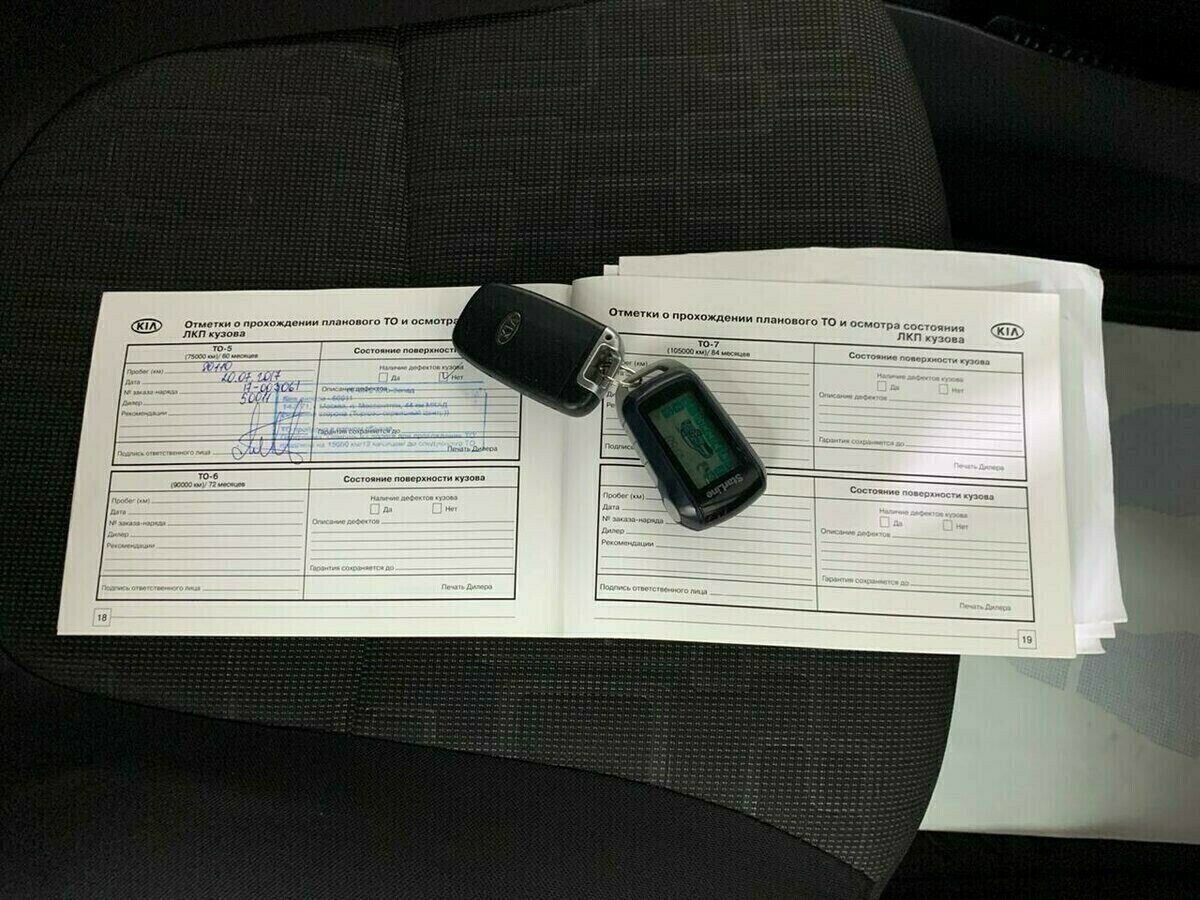 KIA
Отметки о прохождении планового ТО и осмотра
ЛКП кузова
ТО-5
(75000 км)/ 60 месяцев
Состояние поверхности кузо
Пробег (км)
Наличие дефектов кузова
Да Нет
Дата 20.07.2017
№ заказа-наряда
Описание дефектов
Дилер
Рекомендации
Гарантия сохраняется до
Подпись ответственного лица
Печать Дилера
ТО-6
(90000 км)/ 72 месяцев
Состояние поверхности кузова
Пробег (км)
Наличие дефектов кузова
Да Нет
Дата
№ заказа-наряда
Описание дефектов
Дилер
Рекомендации
Гарантия сохраняется до
Подпись ответственного лица
Печать Дилера
18
KIA
StarLine
Отметки о прохождении планового ТО и осмотра состояния
ЛКП кузова
KIA
ТО-7
(105000 км)/ 84 месяцев
Состояние поверхности кузова
Наличие дефектов кузова
Да Нет
Описание дефектов
Гарантия сохраняется до
Печать Дилера
Состояние поверхности кузова
Пробег (км)
Наличие дефектов кузова
Да Нет
Дата
№ заказа-наряда
Описание дефектов
Дилер
Рекомендации
Гарантия сохраняется до
Подпись ответственного лица
Печать Дилера
19